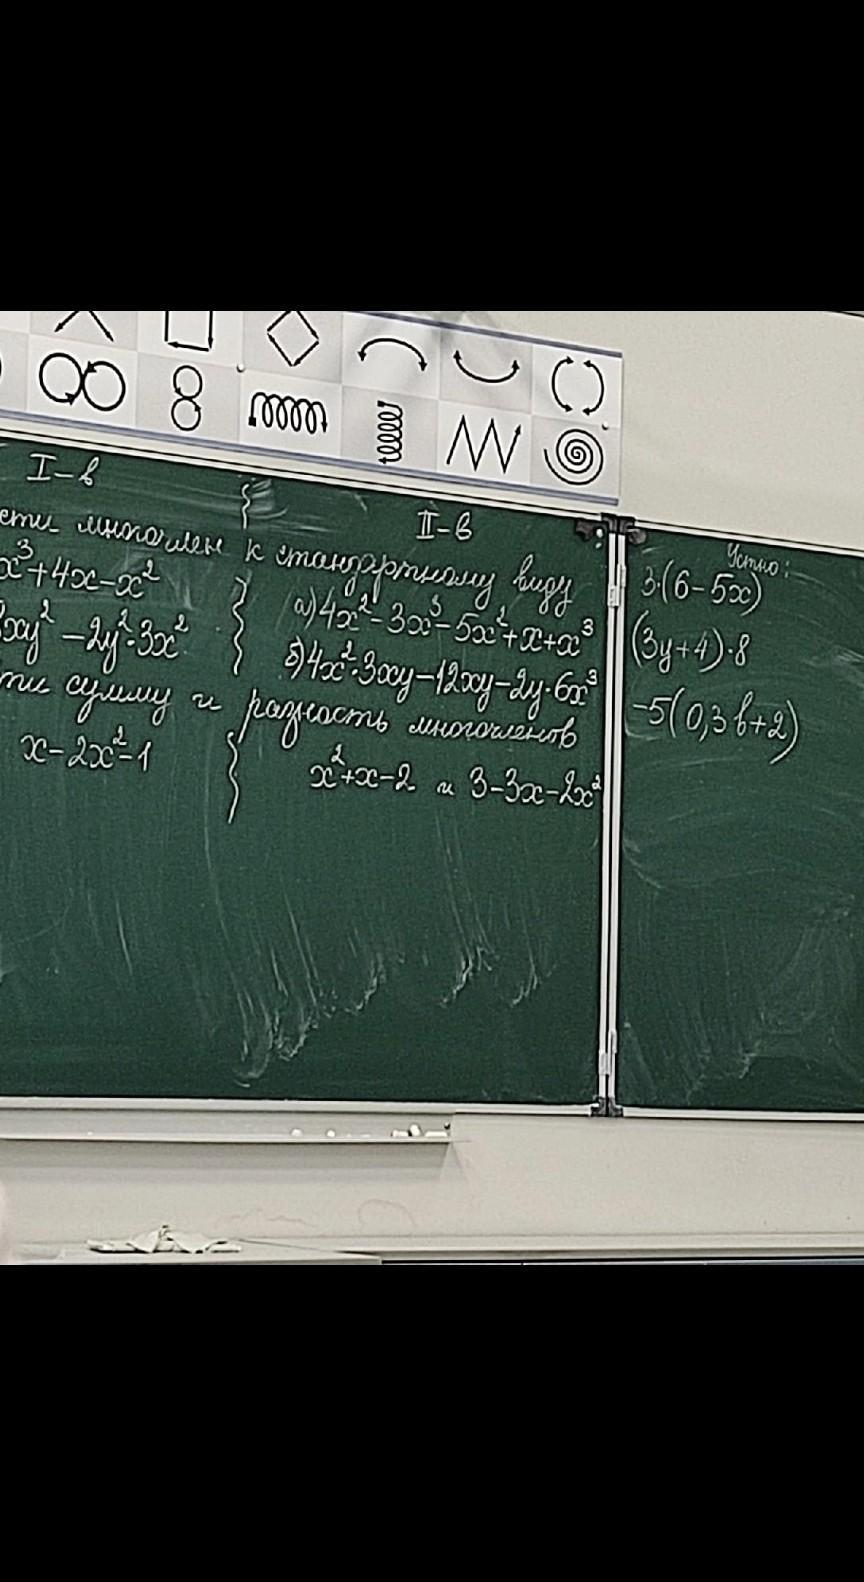 I-в
II-в
сти многочлен к стандартному виду
x³+4x-x²
а) 4x²-3x³-5x²+x+x³
xy²-2y²·3x²
б) 4x²·3xy-12xy-2y·6x³
ти сумму и разность многочленов
x-2x²-1
x²+x-2 и 3-3x-2x²
Устно:
3·(6-5x)
(3y+4)·8
-5(0,3b+2)